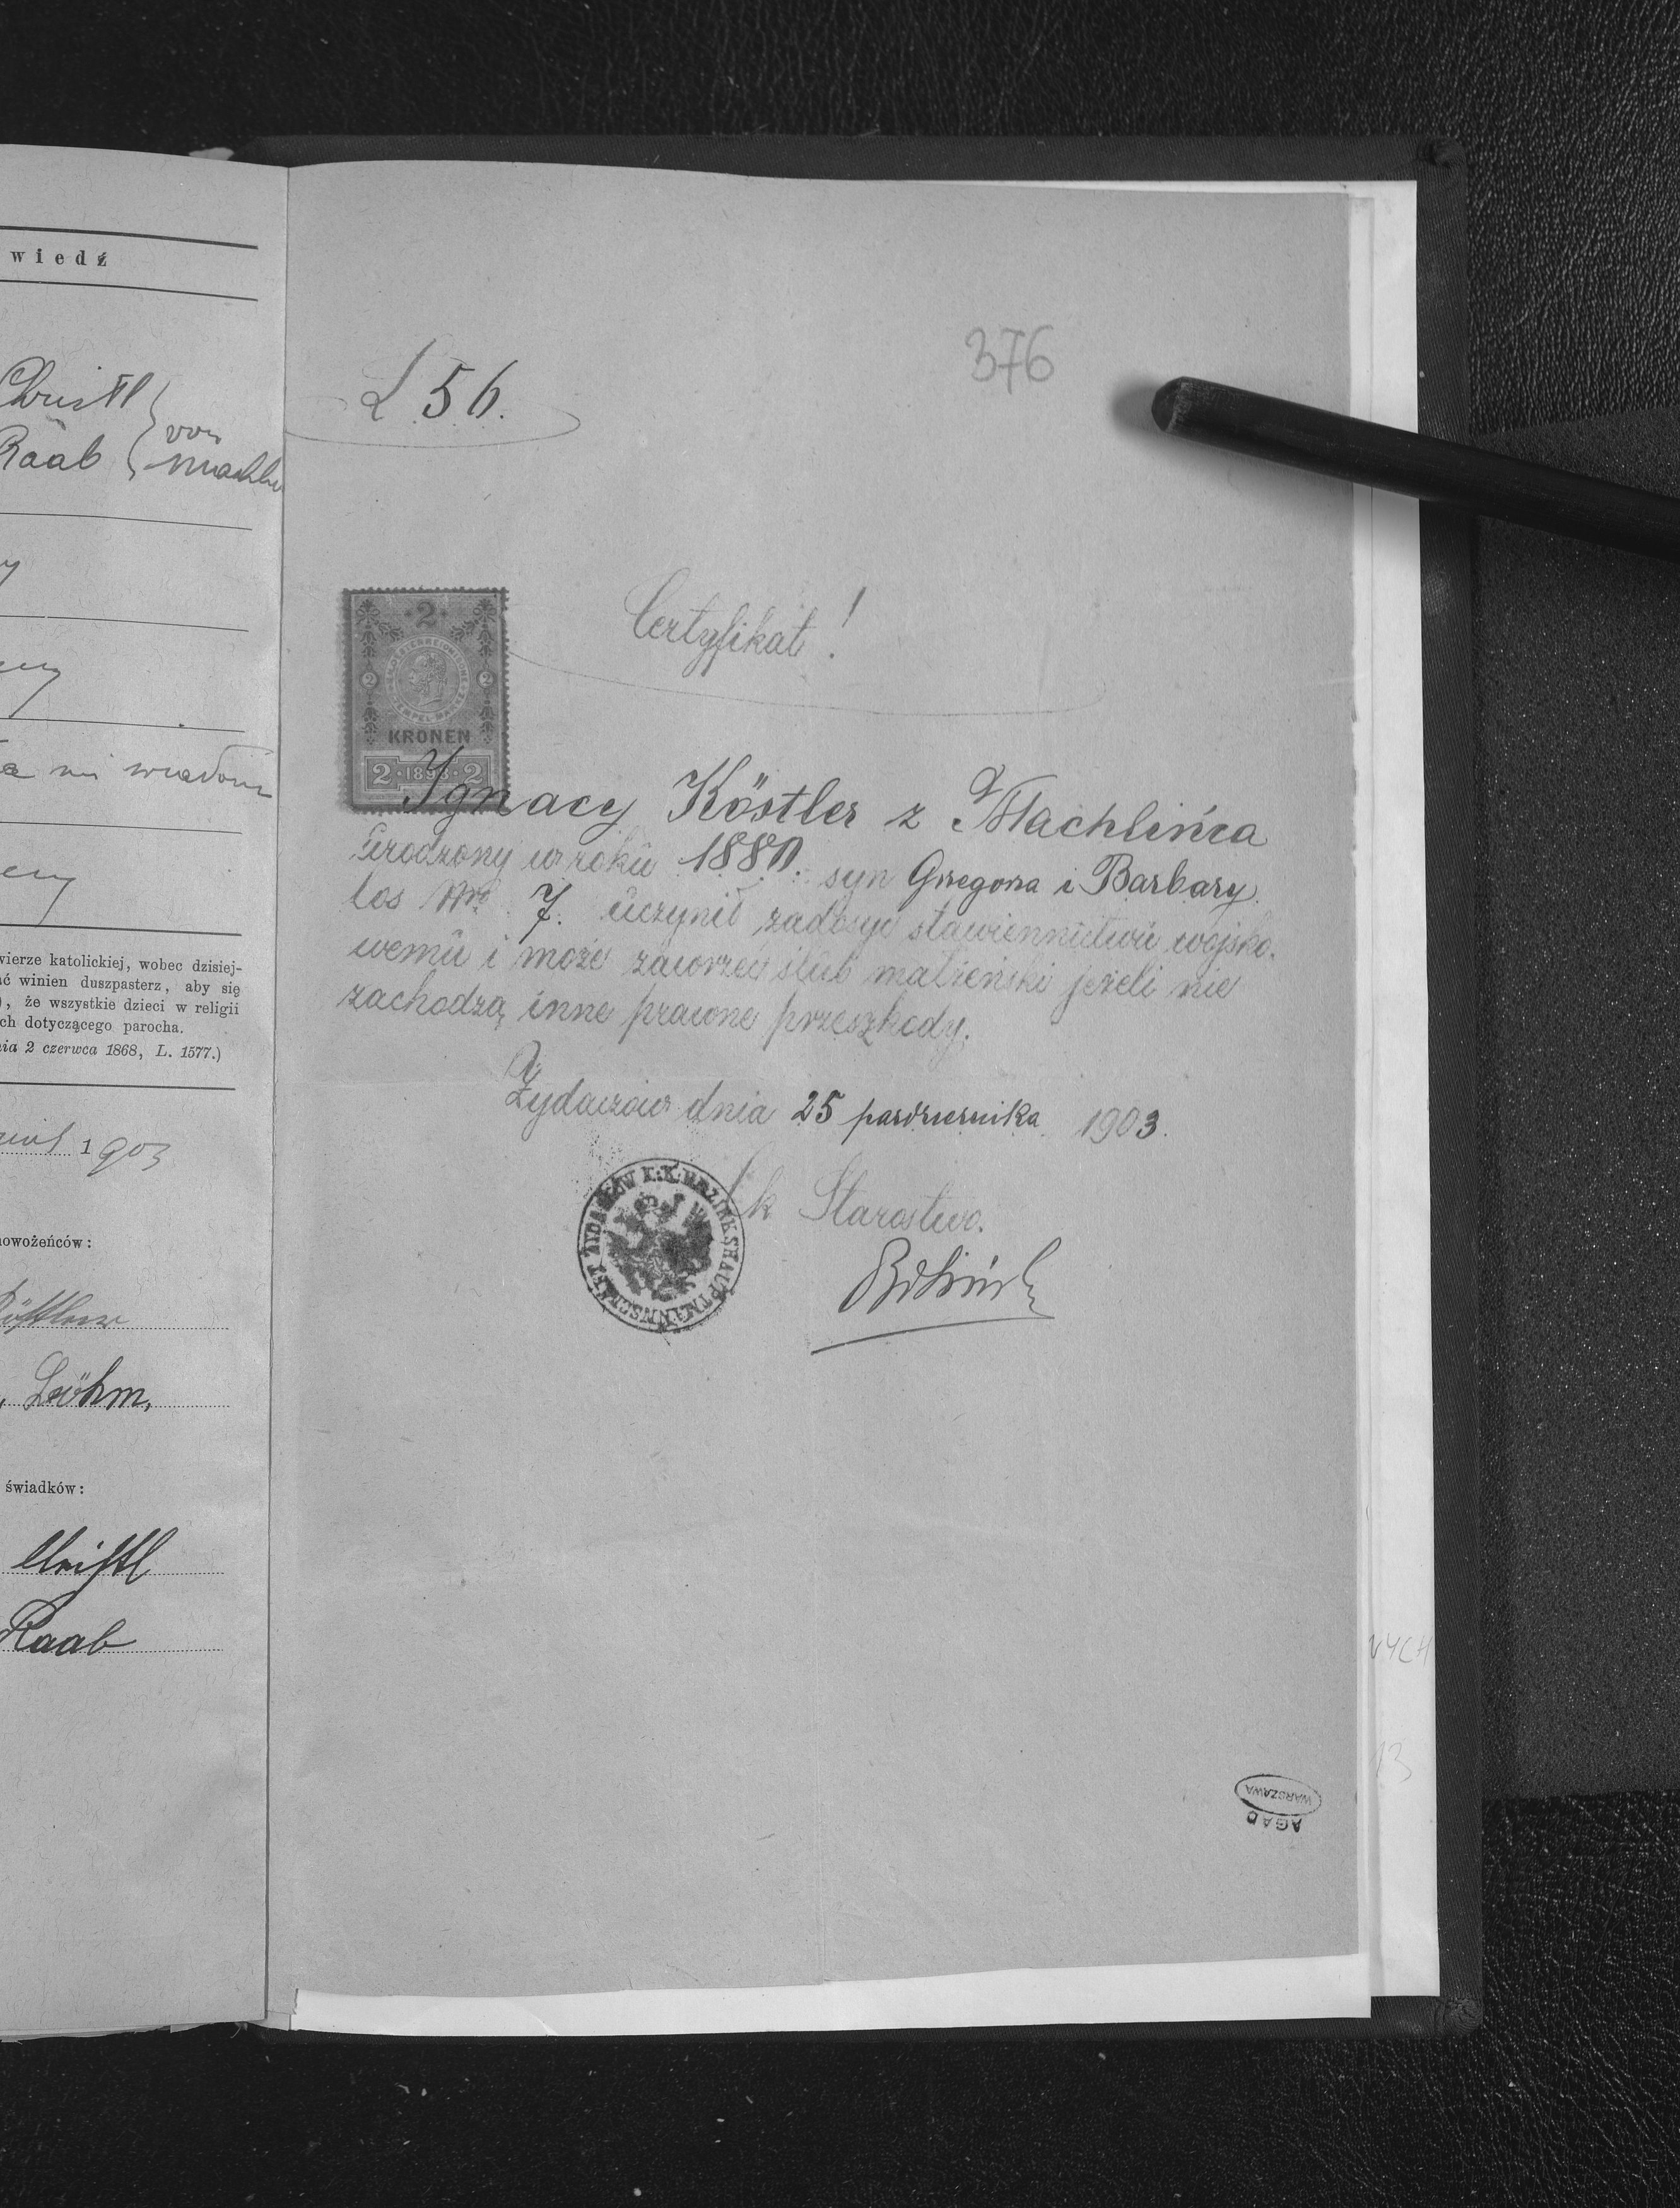 wiedź
Christl
Raab
von
Machli
a mi wiadom
wierze katolickiej, wobec dzisiej-
ać winien duszpasterz, aby się
), że wszystkie dzieci w religii
ch dotyczącego parocha.
nia 2 czerwca 1868, L. 1577.)
1903
nowożeńców:
Löhm,
świadków:
Christl
Raab
376
L 56.
Certyfikat!
2
2 2
KRONEN
2 · 1898 · 2
Ignacy Köstler z Machlińca
urodzony w roku 1880. syn Grzegorza i Barbary
los Nro 7. uczynił zadosyć stawiennictwu wojsko-
wemu i może zawrzeć ślub małżeński jeżeli nie
zachodzą inne prawne przeszkody.
Żydaczów dnia 25 października 1903.
Ck Starostwo.
K.K. BEZIRKSHAUPTMANNSCHAFT ŻYDACZÓW
WARSZAWA
AGAD
NYCH
13